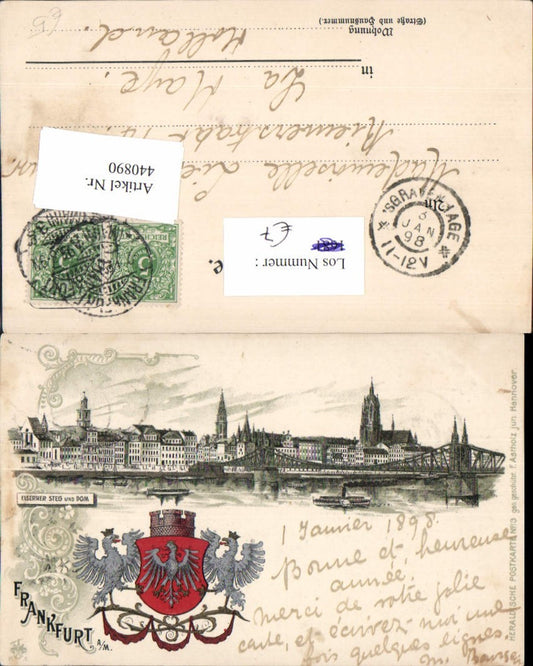 Wohnung
(Straße und Hausnummer.)
in
La Haye.
Holland.
Mademoiselle
Artikel Nr.
440890
Los Nummer :
£7
'SGRAVENHAGE
3
JAN
98
11-12V
FRANKFURT
5
REICHSPOST
EISERNER STEG UND DOM
FRANKFURT A/M.
HERALDISCHE POSTKARTE No
ges. geschützt F. Astholz jun. Hannover
1 Janvier 1898.
Bonne et heureuse
année.
Merci de votre jolie
carte, et écrivez-moi une
fois quelques lignes.